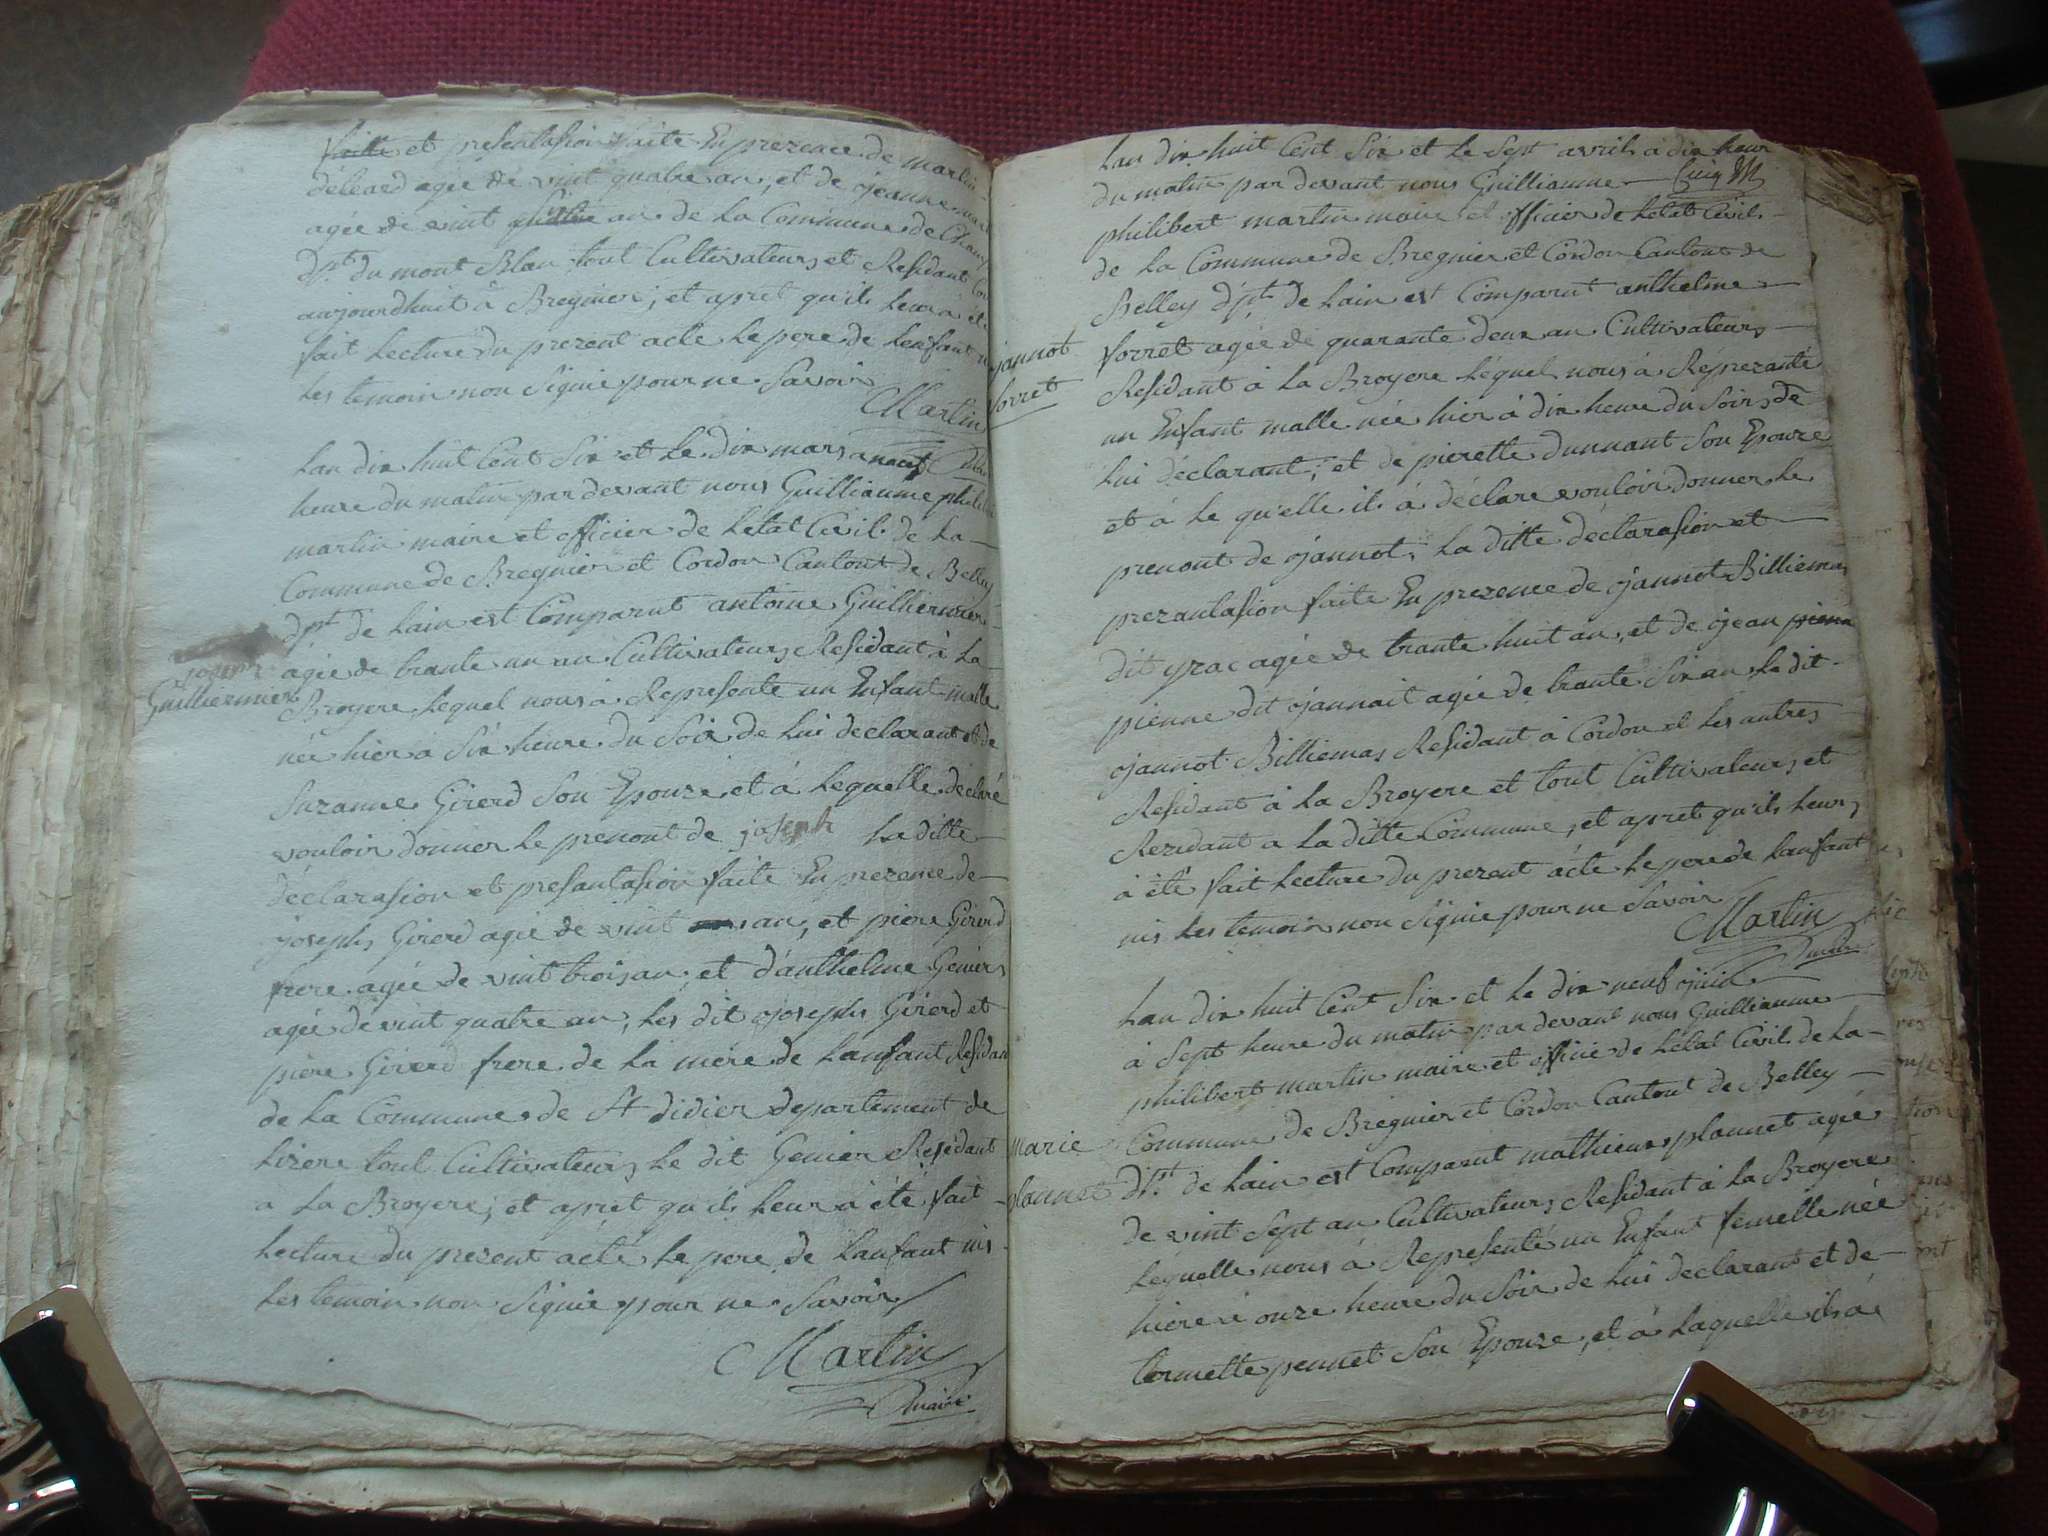 faitte et presentasion faite En prezence de martin
déléard agée de vint quatre an, et de jeanne
agée de vint an de la Commune de
dpt du mont Blan tout Cultivateurs et Residant
aujourdhuit à Bregnier; et apret qu'ils leur à été
fait Lecture du prezent acte le pere de lenfant
les temoin non Signié pour ne Savoir
Martin
Lan dix huit Cent Six et le dix mars a neuf
heure du matin par devant nous Guilliaume philibert
martin maire et officier de letat Civil de la
Commune de Bregnier et Cordon Cantont de Belley
dpt de Lain est Comparut antoine Guilliermier
joseph
Guilliermier
agée de trante un an Cultivateurs Residant à la
Broyere lequel nous à Représente un Enfant malle
née hier à Six heure du Soir de lui declarant et de
Suzanne Girerd Son Epouze et à lequelle déclaré
vouloir donner le prenont de joseph la ditte
déclarasion et presantasion faite En prezence de
joseph Girerd agée de vint an, et piere Girerd
frere agée de vint trois an, et d'anthelme Genier
agée de vint quatre an, les dit joseph Girerd et
piere Girerd frere de la mére de lanfant Residan
de la Commune de St didier departement de
lizere tout Cultivateurs le dit Genier Residant
a la Broyere; et apret qu'ils leur à été fait
lecture du prezent acte le pere de lanfant nis
les temoin non Signié pour ne Savoir
Martin
maire
Lan dix huit Cent Six et le Sept avril à dix heur
du matin par devant nous Guilliaume
philibert martin maire et officier de letat Civil
de la Commune de Bregnier et Cordon Cantont de
Belley dpt de Lain est Comparut anthelme
jannot
forret
forret agée de quarante deux an Cultivateurs
Residant à la Broyere léquel nous à Réprezanté
un Enfant malle née hier à dix heure du Soir, de
lui déclarant; et de pierette Dunnant Son Epouze
et à le quelle il à déclaré vouloir donner le
prenont de jannot, la ditte déclarasion et
prezantasion faite En prezence de jannot Billiemas
dit yrac agée de trante huit an, et de jean piere
pienne dit jannait agée de trante Six an le dit
jannot Billiemas Residant à Cordon et les autres
Residant à la Broyere et tout Cultivateurs et
Rezidant a la ditte Commune, et apret qu'ils leurs
à été fait lecture du prezent acte le pere de lanfant
nis les temoin non Signié pour ne Savoir
Martin
maire
Lan dix huit Cent Six et le dix neuf juin
à Sept heure du matin par devant nous Guilliaume
philibert martin maire et officié de letat Civil de la
marie
plannet
Commune de Bregnier et Cordon Cantont de Belley
dpt de Lain est Comparut mathieux plannet agée
de vint Sept an Cultivateurs Residant à la Broyere
lequelle nous à Representé un Enfant femelle née
hiere à onze heure du Soir de lui declarant et de
pennet Son Epouze, et à laquelle ils à